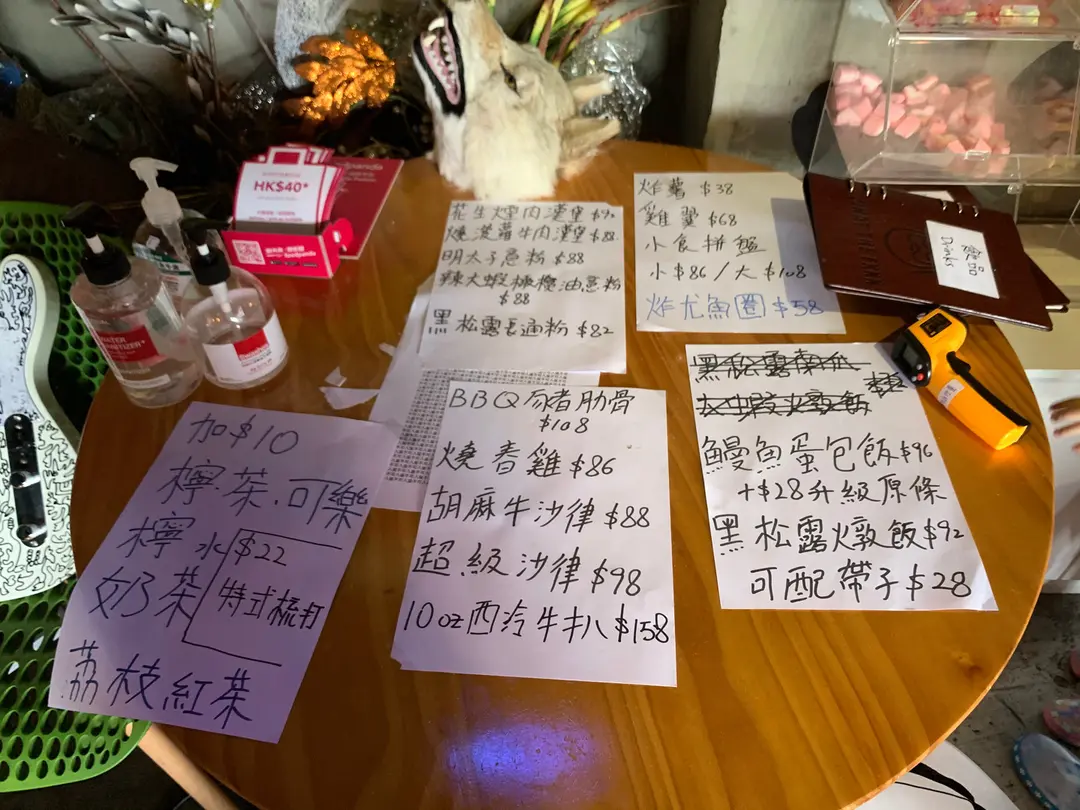 HK$40*
花生煙肉漢堡
燒菠蘿牛肉漢堡 $88
明太子意粉 $88
辣大蝦橄欖油意粉
$88
黑松露長通粉 $82
炸薯 $38
雞翼 $68
小食拼盤
小 $86 / 大 $108
炸尤魚圈 $58
飲品
Drinks
加 $10
檸.茶.可樂
檸水
奶茶
荔枝紅茶
$22
特式梳打
BBQ 豕者肋骨
$108
燒香雞 $86
胡麻牛沙律 $88
超級沙律 $98
10 oz 西冷牛扒 $158
鰻魚蛋包飯 $96
+$28升級原條
黑松露火燉飯 $92
可配帶子 $28